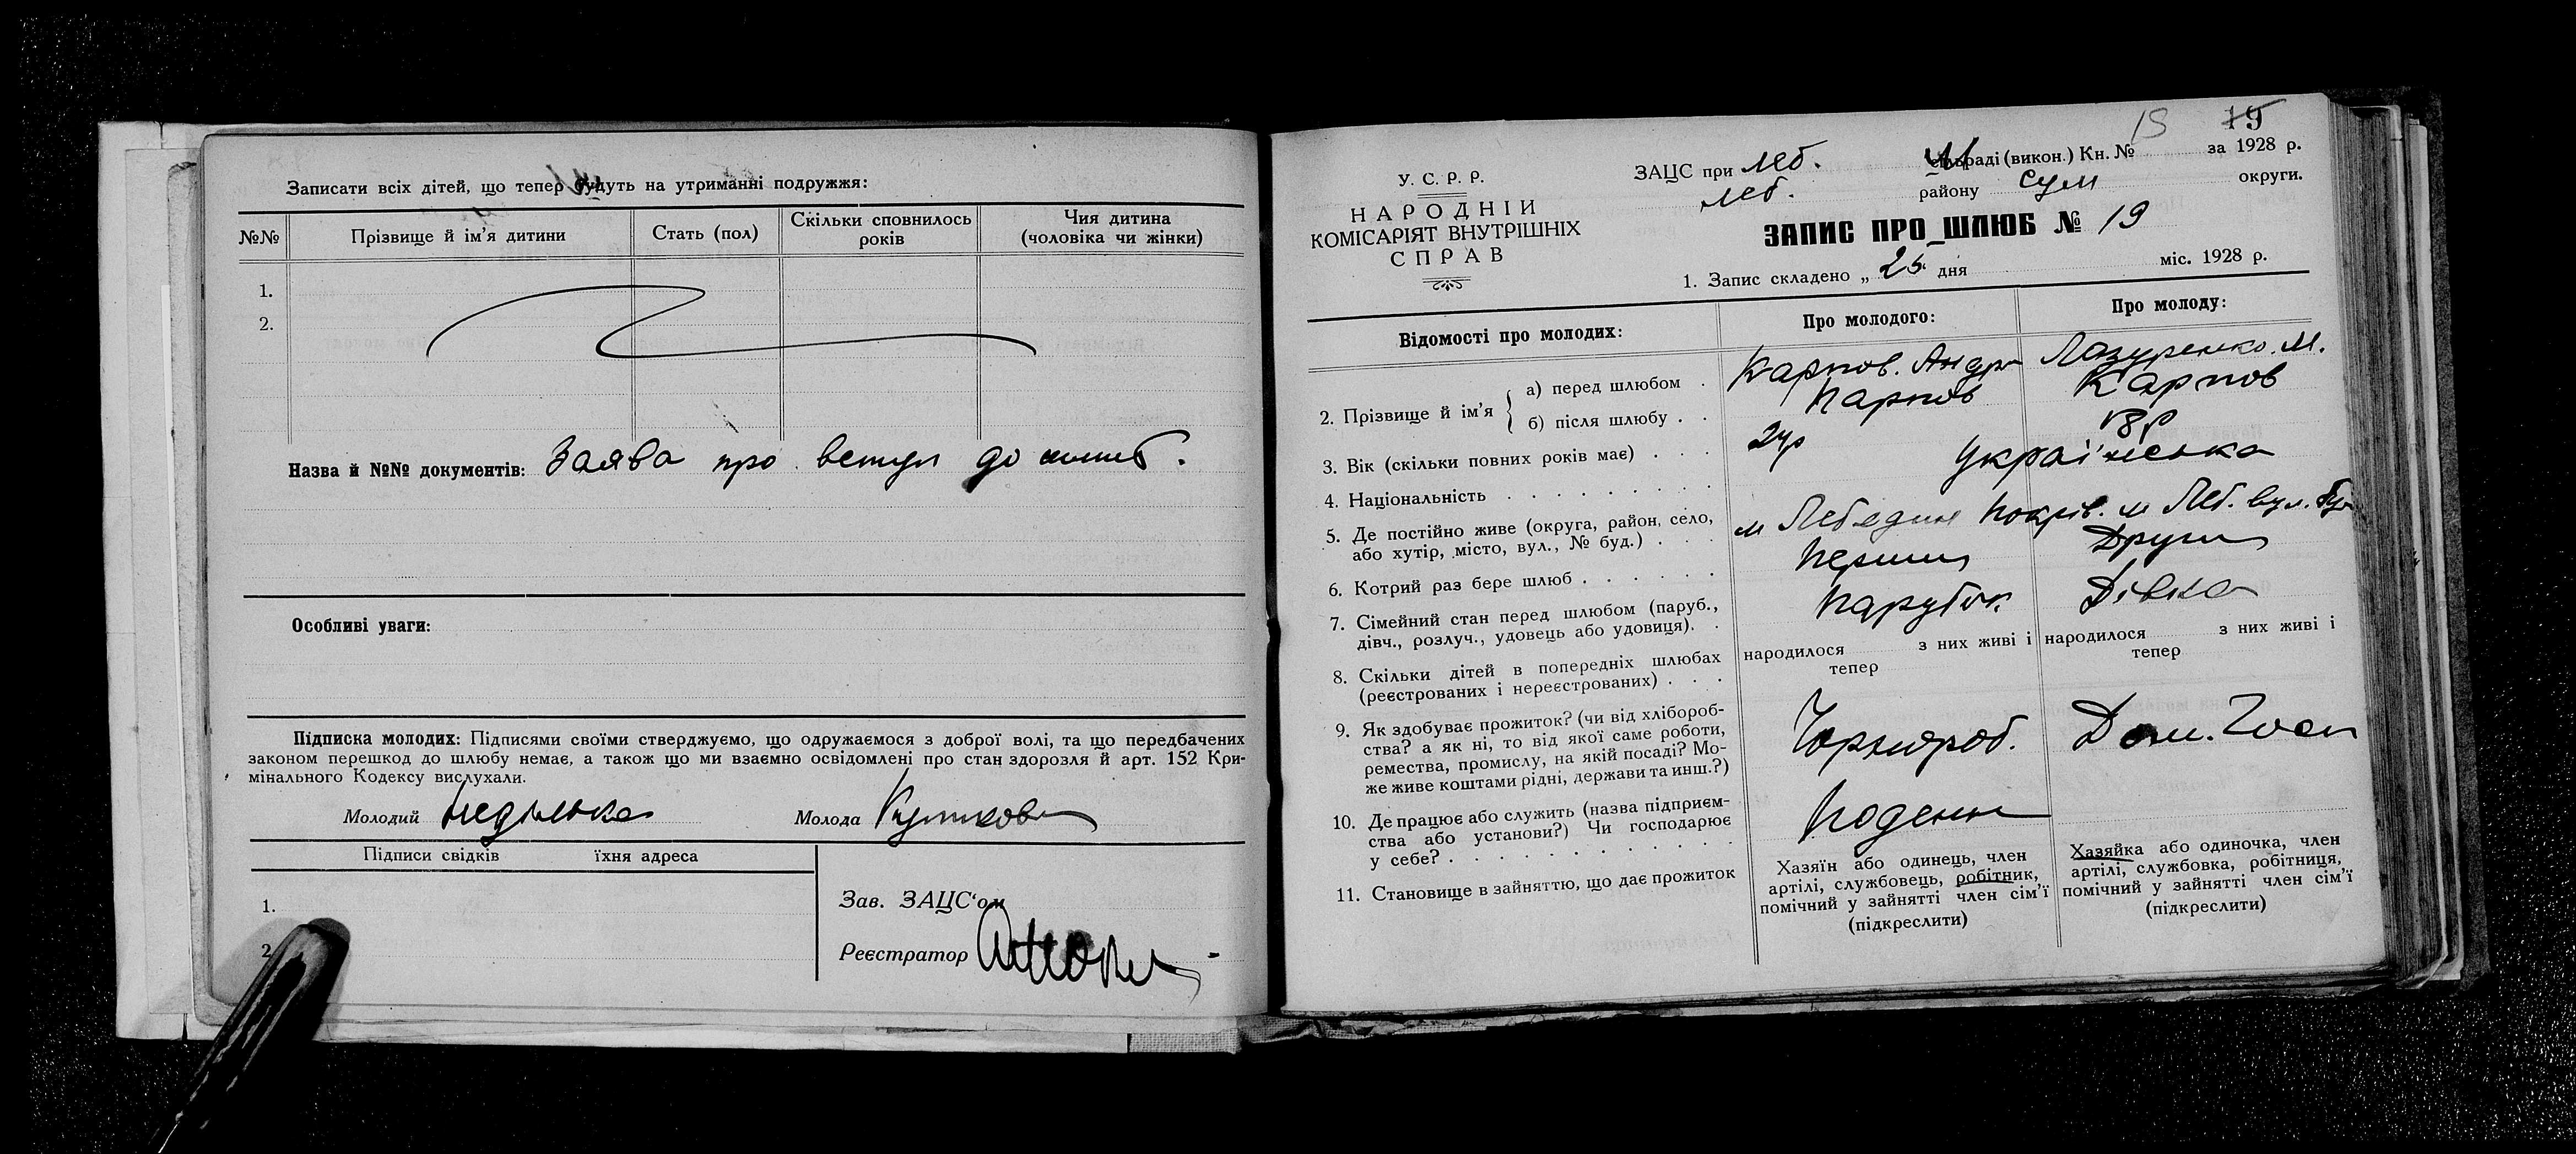 Записати всіх дітей, що тепер будуть на утриманні подружжя:
№№
Прізвище й ім'я дитини
Стать (пол)
Скільки сповнилось років
Чия дитина (чоловіка чи жінки)
1.
2.
Назва й №№ документів: Заява про вступ до шлюб.
Особливі уваги:
Підписка молодих: Підписями своїми стверджуємо, що одружаємося з доброї волі, та що передбачених
законом перешкод до шлюбу немає, а також що ми взаємно освідомлені про стан здоровля й арт. 152 Кри-
мінального Кодексу вислухали.
Молодий Неділька Молода Куликова
Підписи свідків їхня адреса
1.
2.
Зав. ЗАЦС'ом
Реєстратор
15 19
У. С. Р. Р.
НАРОДНІЙ
КОМІСАРІЯТ ВНУТРІШНІХ
СПРАВ
ЗАЦС при Леб. сільраді (викон.) Кн. № за 1928 р.
Леб. району Сум округи.
ЗАПИС ПРО ШЛЮБ № 19
1. Запис складено „ 25 дня міс. 1928 р.
Відомості про молодих:
Про молодого:
Про молоду:
2. Прізвище й ім'я
а) перед шлюбом . Карпов. Андр Лазуренко. М.
б) після шлюбу . . Карпов Карпов
3. Вік (скільки повних років має) . . . 24р 18р
4. Національність . . . . . . . . . Українська
5. Де постійно живе (округа, район, село,
або хутір, місто, вул., № буд.) . . . м Лебедин Покрів. м Леб. вул.
6. Котрий раз бере шлюб . . . . . . Перший Другий
7. Сімейний стан перед шлюбом (паруб.,
дівч., розлуч., удовець або удовиця). . Парубок Дівка
8. Скільки дітей в попередніх шлюбах
(реєстрованих і нереєстрованих) . . .
народилося з них живі і
тепер
народилося з них живі і
тепер
9. Як здобуває прожиток? (чи від хлібороб-
ства? а як ні, то від якої саме роботи,
ремества, промислу, на якій посаді? Мо-
же живе коштами рідні, держави та инш.?)
Чорнороб. Дом. Госп
10. Де працює або служить (назва підприєм-
ства або установи?) Чи господарює
у себе? . . . . . . . . . . . .
Поденно
11. Становище в зайняттю, що дає прожиток
Хазяїн або одинець, член
артілі, службовець, робітник,
помічний у зайнятті член сім'ї
(підкреслити)
Хазяйка або одиночка, член
артілі, службовка, робітниця,
помічний у зайнятті член сім'ї
(підкреслити)